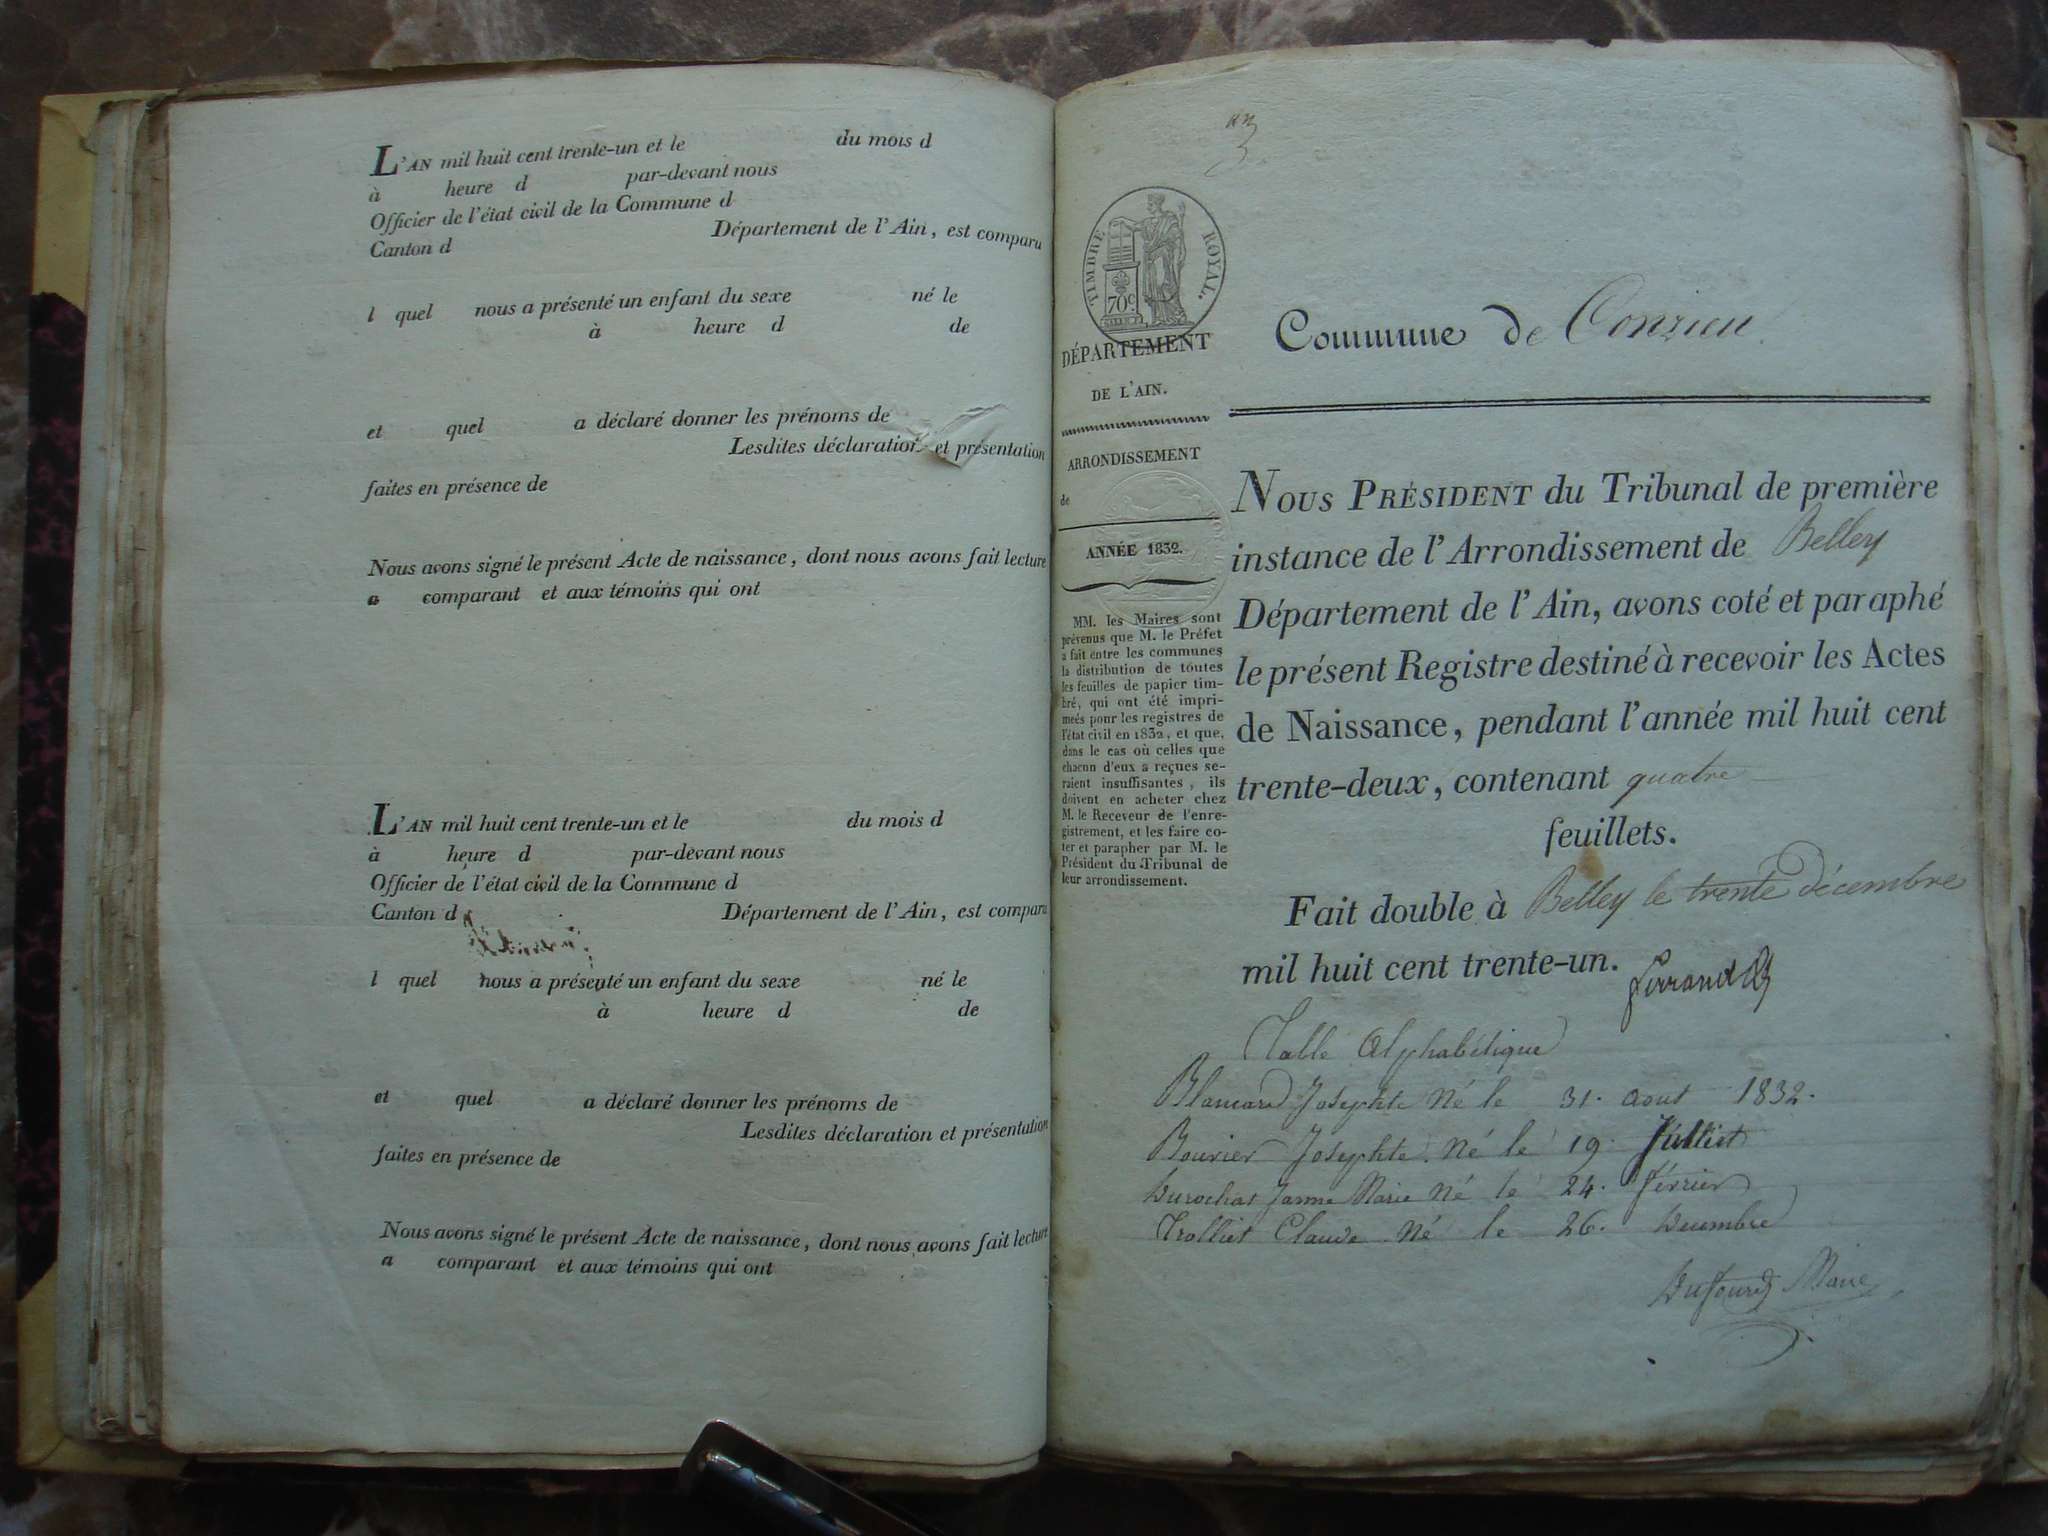 L'AN mil huit cent trente-un et le du mois d
à heure d par-devant nous
Officier de l'état civil de la Commune d
Canton d Département de l'Ain, est comparu
l quel nous a présenté un enfant du sexe né le
à heure d de
et quel a déclaré donner les prénoms de
Lesdites déclaration et présentation
faites en présence de
Nous avons signé le présent Acte de naissance, dont nous avons fait lecture
a comparant et aux témoins qui ont
L'AN mil huit cent trente-un et le du mois d
à heure d par-devant nous
Officier de l'état civil de la Commune d
Canton d Département de l'Ain, est comparu
l quel nous a présenté un enfant du sexe né le
à heure d de
et quel a déclaré donner les prénoms de
Lesdites déclaration et présentation
faites en présence de
Nous avons signé le présent Acte de naissance, dont nous avons fait lecture
a comparant et aux témoins qui ont
un
TIMBRE ROYAL.
70c
DÉPARTEMENT
DE L'AIN.
ARRONDISSEMENT
de
ANNÉE 1832.
MM. les Maires sont
prévenus que M. le Préfet
a fait entre les communes
la distribution de toutes
les feuilles de papier tim-
bré, qui ont été impri-
meés pour les registres de
l'état civil en 1832, et que,
dans le cas où celles que
chacun d'eux a reçues se-
raient insuffisantes, ils
doivent en acheter chez
M. le Receveur de l'enre-
gistrement, et les faire co-
ter et parapher par M. le
Président du Tribunal de
leur arrondissement.
Commune de Conzieu
NOUS PRÉSIDENT du Tribunal de première
instance de l'Arrondissement de Belley
Département de l'Ain, avons coté et paraphé
le présent Registre destiné à recevoir les Actes
de Naissance, pendant l'année mil huit cent
trente-deux, contenant quatre
feuillets.
Fait double à Belley le trente décembre
mil huit cent trente-un.
Table Alphabétique
Josephte Né le 31. aout 1832.
Bouvier Josephte. Né le 19. Julliet
Durochat Janne Marie Né le 24. février
Trolliet Claude Né le 26. Decembre
Dufour Maire